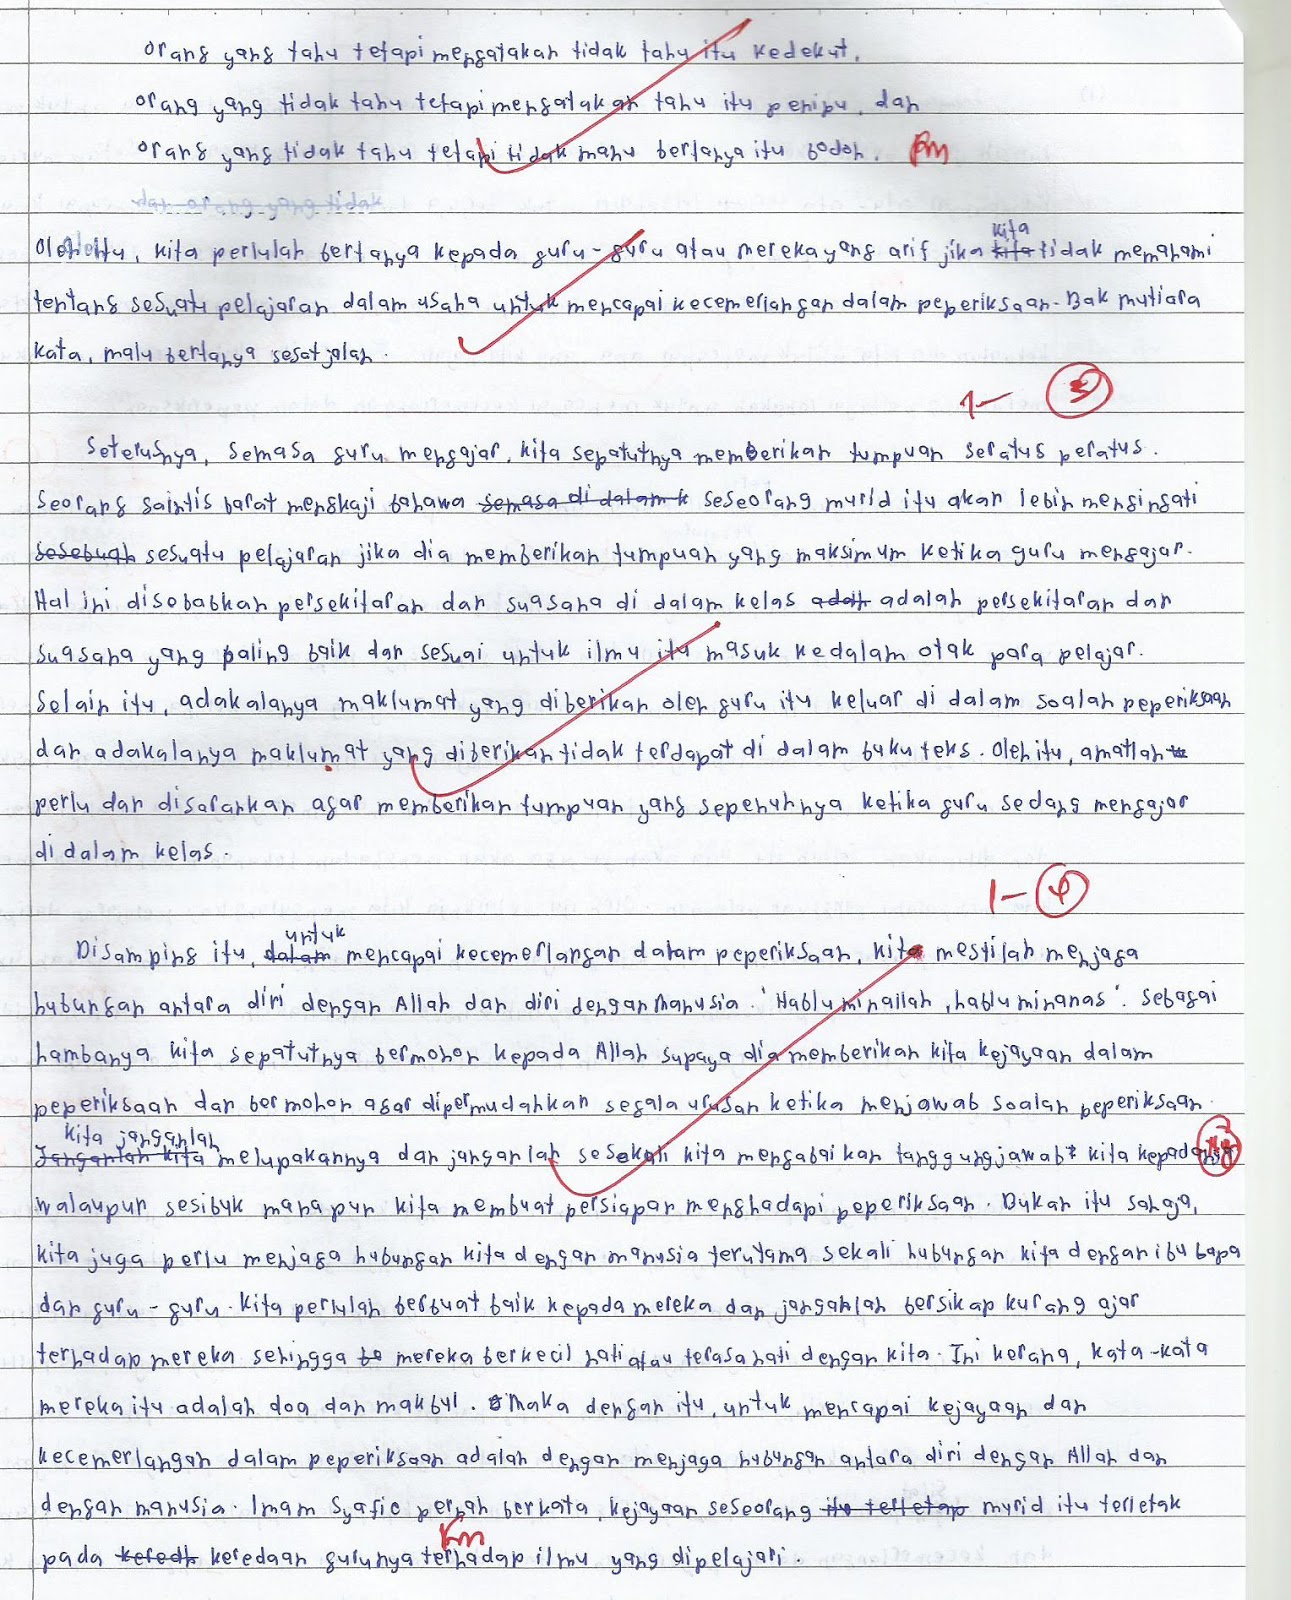 orang yang tahu tetapi mengatakan tidak tahu itu kedekut.
orang yang tidak tahu tetapi mengatakan tahu itu penipu, dan
orang yang tidak tahu tetapi tidak mahu bertanya itu bodoh.
Oleh itu, kita perlulah bertanya kepada guru-guru atau mereka yang arif jika kita tidak memahami
tentang sesuatu pelajaran dalam usaha untuk mencapai kecemerlangan dalam peperiksaan. Bak mutiara
kata, malu bertanya sesat jalan.
1- 3
Seterusnya, semasa guru mengajar, kita sepatutnya memberikan tumpuan seratus peratus.
Seorang saintis barat mengkaji bahawa semasa di dalam k seseorang murid itu akan lebih mengingati
sesebuah sesuatu pelajaran jika dia memberikan tumpuan yang maksimum ketika guru mengajar.
Hal ini disebabkan persekitaran dan suasana di dalam kelas adalah persekitaran dan
suasana yang paling baik dan sesuai untuk ilmu itu masuk kedalam otak para pelajar.
Selain itu, adakalanya maklumat yang diberikan oleh guru itu keluar di dalam soalan peperiksaan
dan adakalanya maklumat yang diberikan tidak terdapat di dalam buku teks. Oleh itu, amatlah
perlu dan disarankan agar memberikan tumpuan yang sepenuhnya ketika guru sedang mengajar
di dalam kelas.
1- 4
Disamping itu, dalam untuk mencapai kecemerlangan dalam peperiksaan, kita mestilah menjaga
hubungan antara diri dengan Allah dan diri dengan manusia. 'Hablu minallah, hablu minanas'. Sebagai
hambanya kita sepatutnya bermohon kepada Allah supaya dia memberikan kita kejayaan dalam
peperiksaan dan bermohon agar dipermudahkan segala urusan ketika menjawab soalan peperiksaan.
Janganlah kita kita janganlah melupakannya dan janganlah sesekali kita mengabaikan tanggungjawab kita kepadanya
walaupun sesibuk mana pun kita membuat persiapan menghadapi peperiksaan. Bukan itu sahaja,
kita juga perlu menjaga hubungan kita dengan manusia terutama sekali hubungan kita dengan ibu bapa
dan guru-guru. Kita perlulah berbuat baik kepada mereka dan janganlah bersikap kurang ajar
terhadap mereka sehingga mereka berkecil hati atau terasa hati dengan kita. Ini kerana, kata-kata
mereka itu adalah doa dan makbul. Maka dengan itu, untuk mencapai kejayaan dan
kecemerlangan dalam peperiksaan adalah dengan menjaga hubungan antara diri dengan Allah dan
dengan manusia. Imam Syafie pernah berkata, kejayaan seseorang itu terletap murid itu terletak
pada keredh keredaan gurunya terhadap ilmu yang dipelajari.